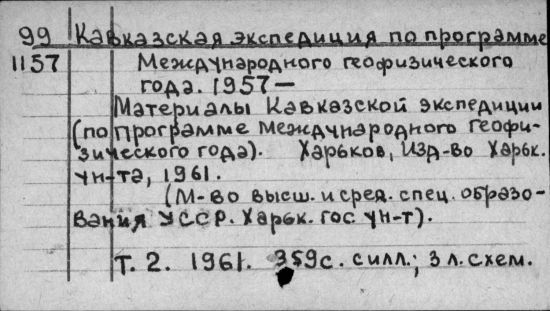 99 Кавказская экспедиция по программе
1157 Международного геофизического
года. 1957—
Материалы Кавказской экспедиции
(по программе Международного геофи-
зического года). Харьков, Изд-во Харьк.
ун-та, 1961.
(М-во высш. и сред. спец. образо-
вания УССР. Харьк. гос ун-т).
Т. 2. 1961. 359с. с илл.; 3 л. схем.